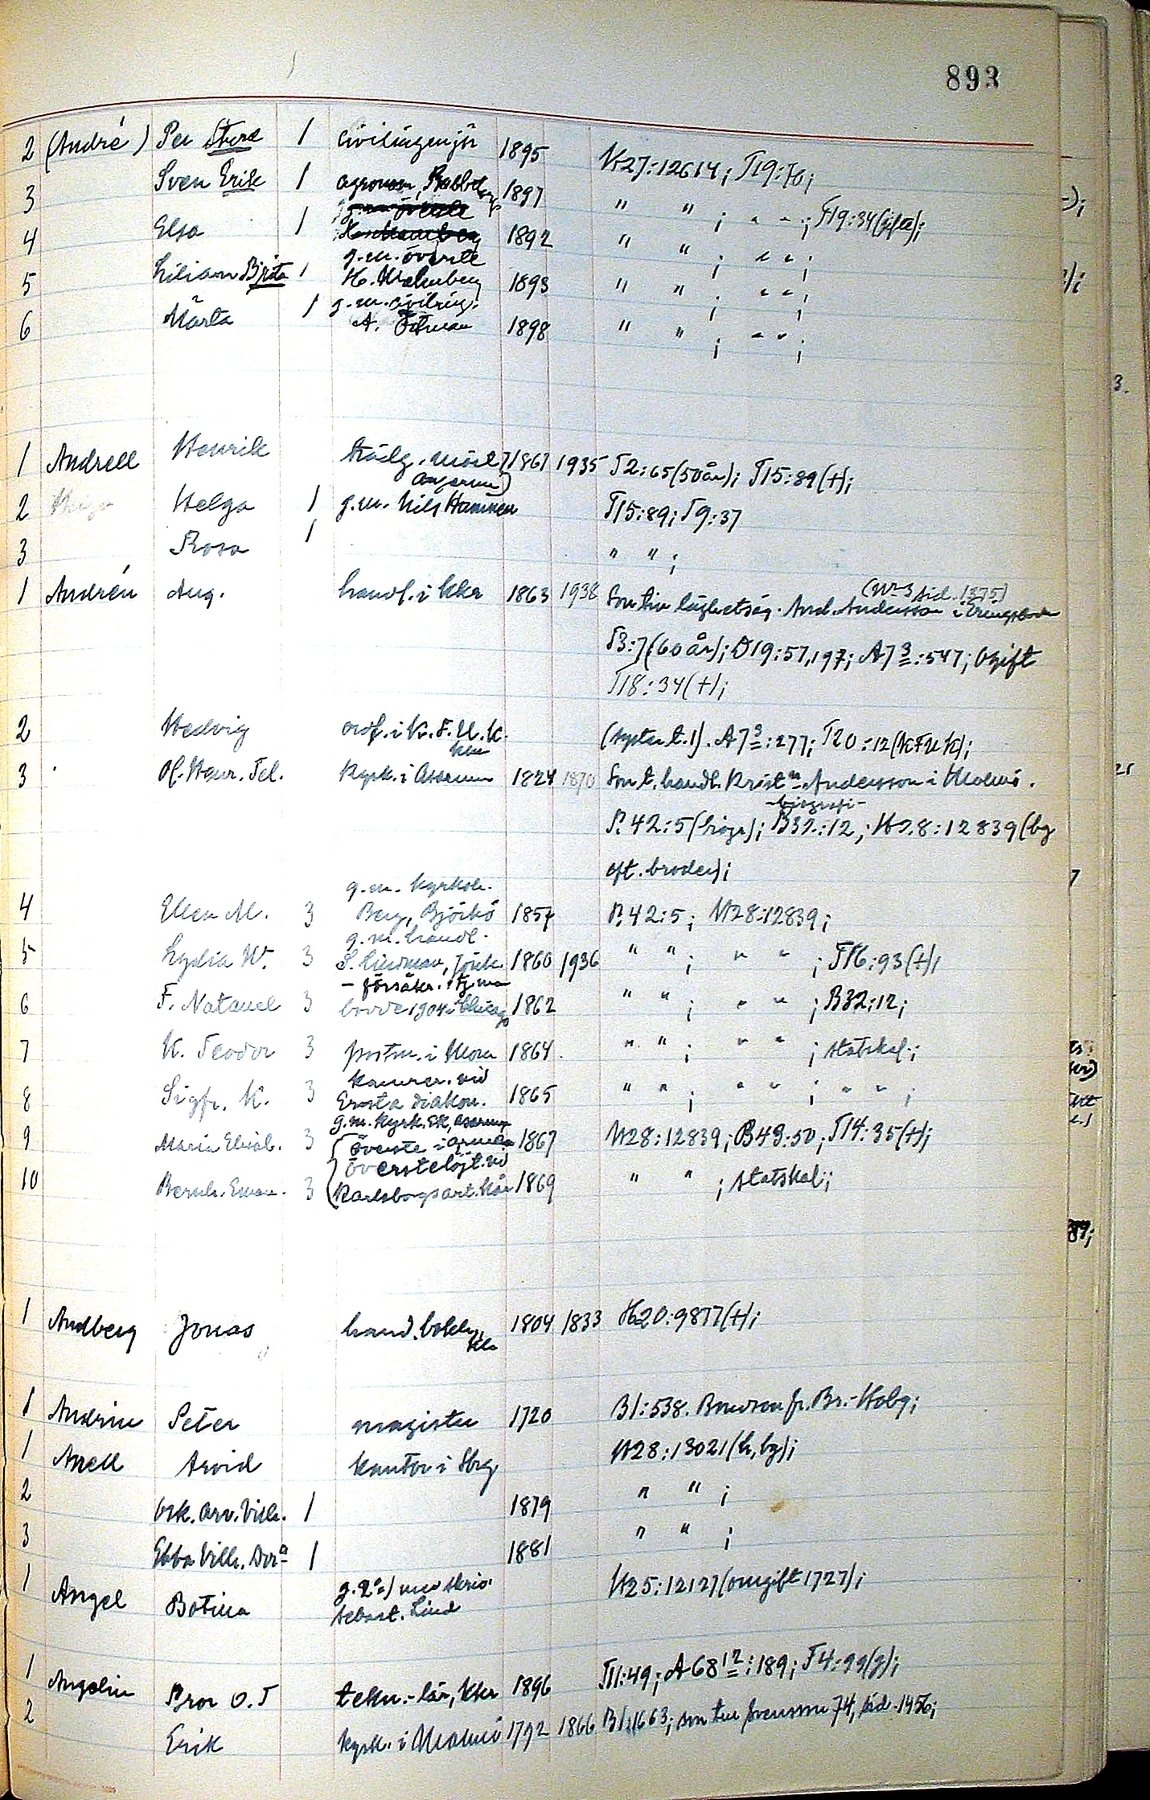 893
2 (André) Per Sture 1 civilingenjör 1895 N27:12614; T19:70;
3 Sven Erik 1 agronom, 1897 " " ; " " ; T19:34(gifta);
4 Elsa 1 1892 " " ; " " ;
g.m. överste
5 Lilian Brita 1 H. Malmberg 1893 " " ; " " ;
g.m. civiling.
6 Märta 1 A. 1898 " " ; " " ;
1 Andrell Henrik trädg. mäst. 1867 1935 T2:65(50år); T15:89(+);
2 Helga 1 g.m. Nils T15:89; T9:37
3 Rosa 1 " " ;
(Nr 3 sid. 1375)
1 Andrén Aug. handl. i Kkr 1863 1938 Son t. läghetsäg. And. Andersson i
T3:7(60år); D19:57,197; A7 3:547; Ogift
T18:34(+);
2 Hedvig ordf. i K.F.U.K. (syster t. 1). A7 3:277; T20:12(KFUK);
3 Ol. Henr. Tel. kyrk. i Asarum 1824 1870 Son t. handl. Krist. Andersson i Malmö.
-biografi-
P.42:5(höga); B32:12; N28:12839(bg
eft. broder);
g.m. kyrkoh.
4 Ellen M. 3 Berg, Björkö 1857 P.42:5; N28:12839;
g.m. handl.
5 Lydia W. 3 S. Lindman, Jönk. 1860 1936 " " ; " " ; T16:93(+);
6 F. Natanael 3 bodde 1904 i Chicago 1862 " " ; " " ; B32:12;
7 K. Teodor 3 postm. i Mora 1864. " " ; " " ; statskal.;
kamrer. vid
8 Sigfr. K. 3 Ersta diakon. 1865 " " ; " " ; " " ;
g.m. kyrk. Ek, Asarum
9 Maria Elisab. 3 överste i armén 1867 N28:12839; B49:50; T14:35(+);
överstelöjt. vid
10 Bernh. Eman. 3 Karlsborgs art. kår 1869 " " ; statskal.;
1 Andberg Jonas hand. bokh. 1804 1833 H20:9877(+);
1 Andrin Peter magister 1720 B1:538. Bondson fr. Br.-Hoby;
1 Anell Arvid kantor i Hbg. N28:13021(h, bg);
2 Osk. Arv. Vilh. 1 1879 " " ;
3 Ebba Vilh. Dor. 1 1881 " " ;
1 Angel Botilla g. 2°) med skriv. N25:12127(omgift 1727);
Sebast. Lind
1 Angelin Bror O. T tekn.-lär, Kkr 1896 T11:49; A68 12:189; T4:99(g);
2 Erik kyrk. i Malmö 1792 1866 B1:1663; son t. Svensson 74, sid. 1456;